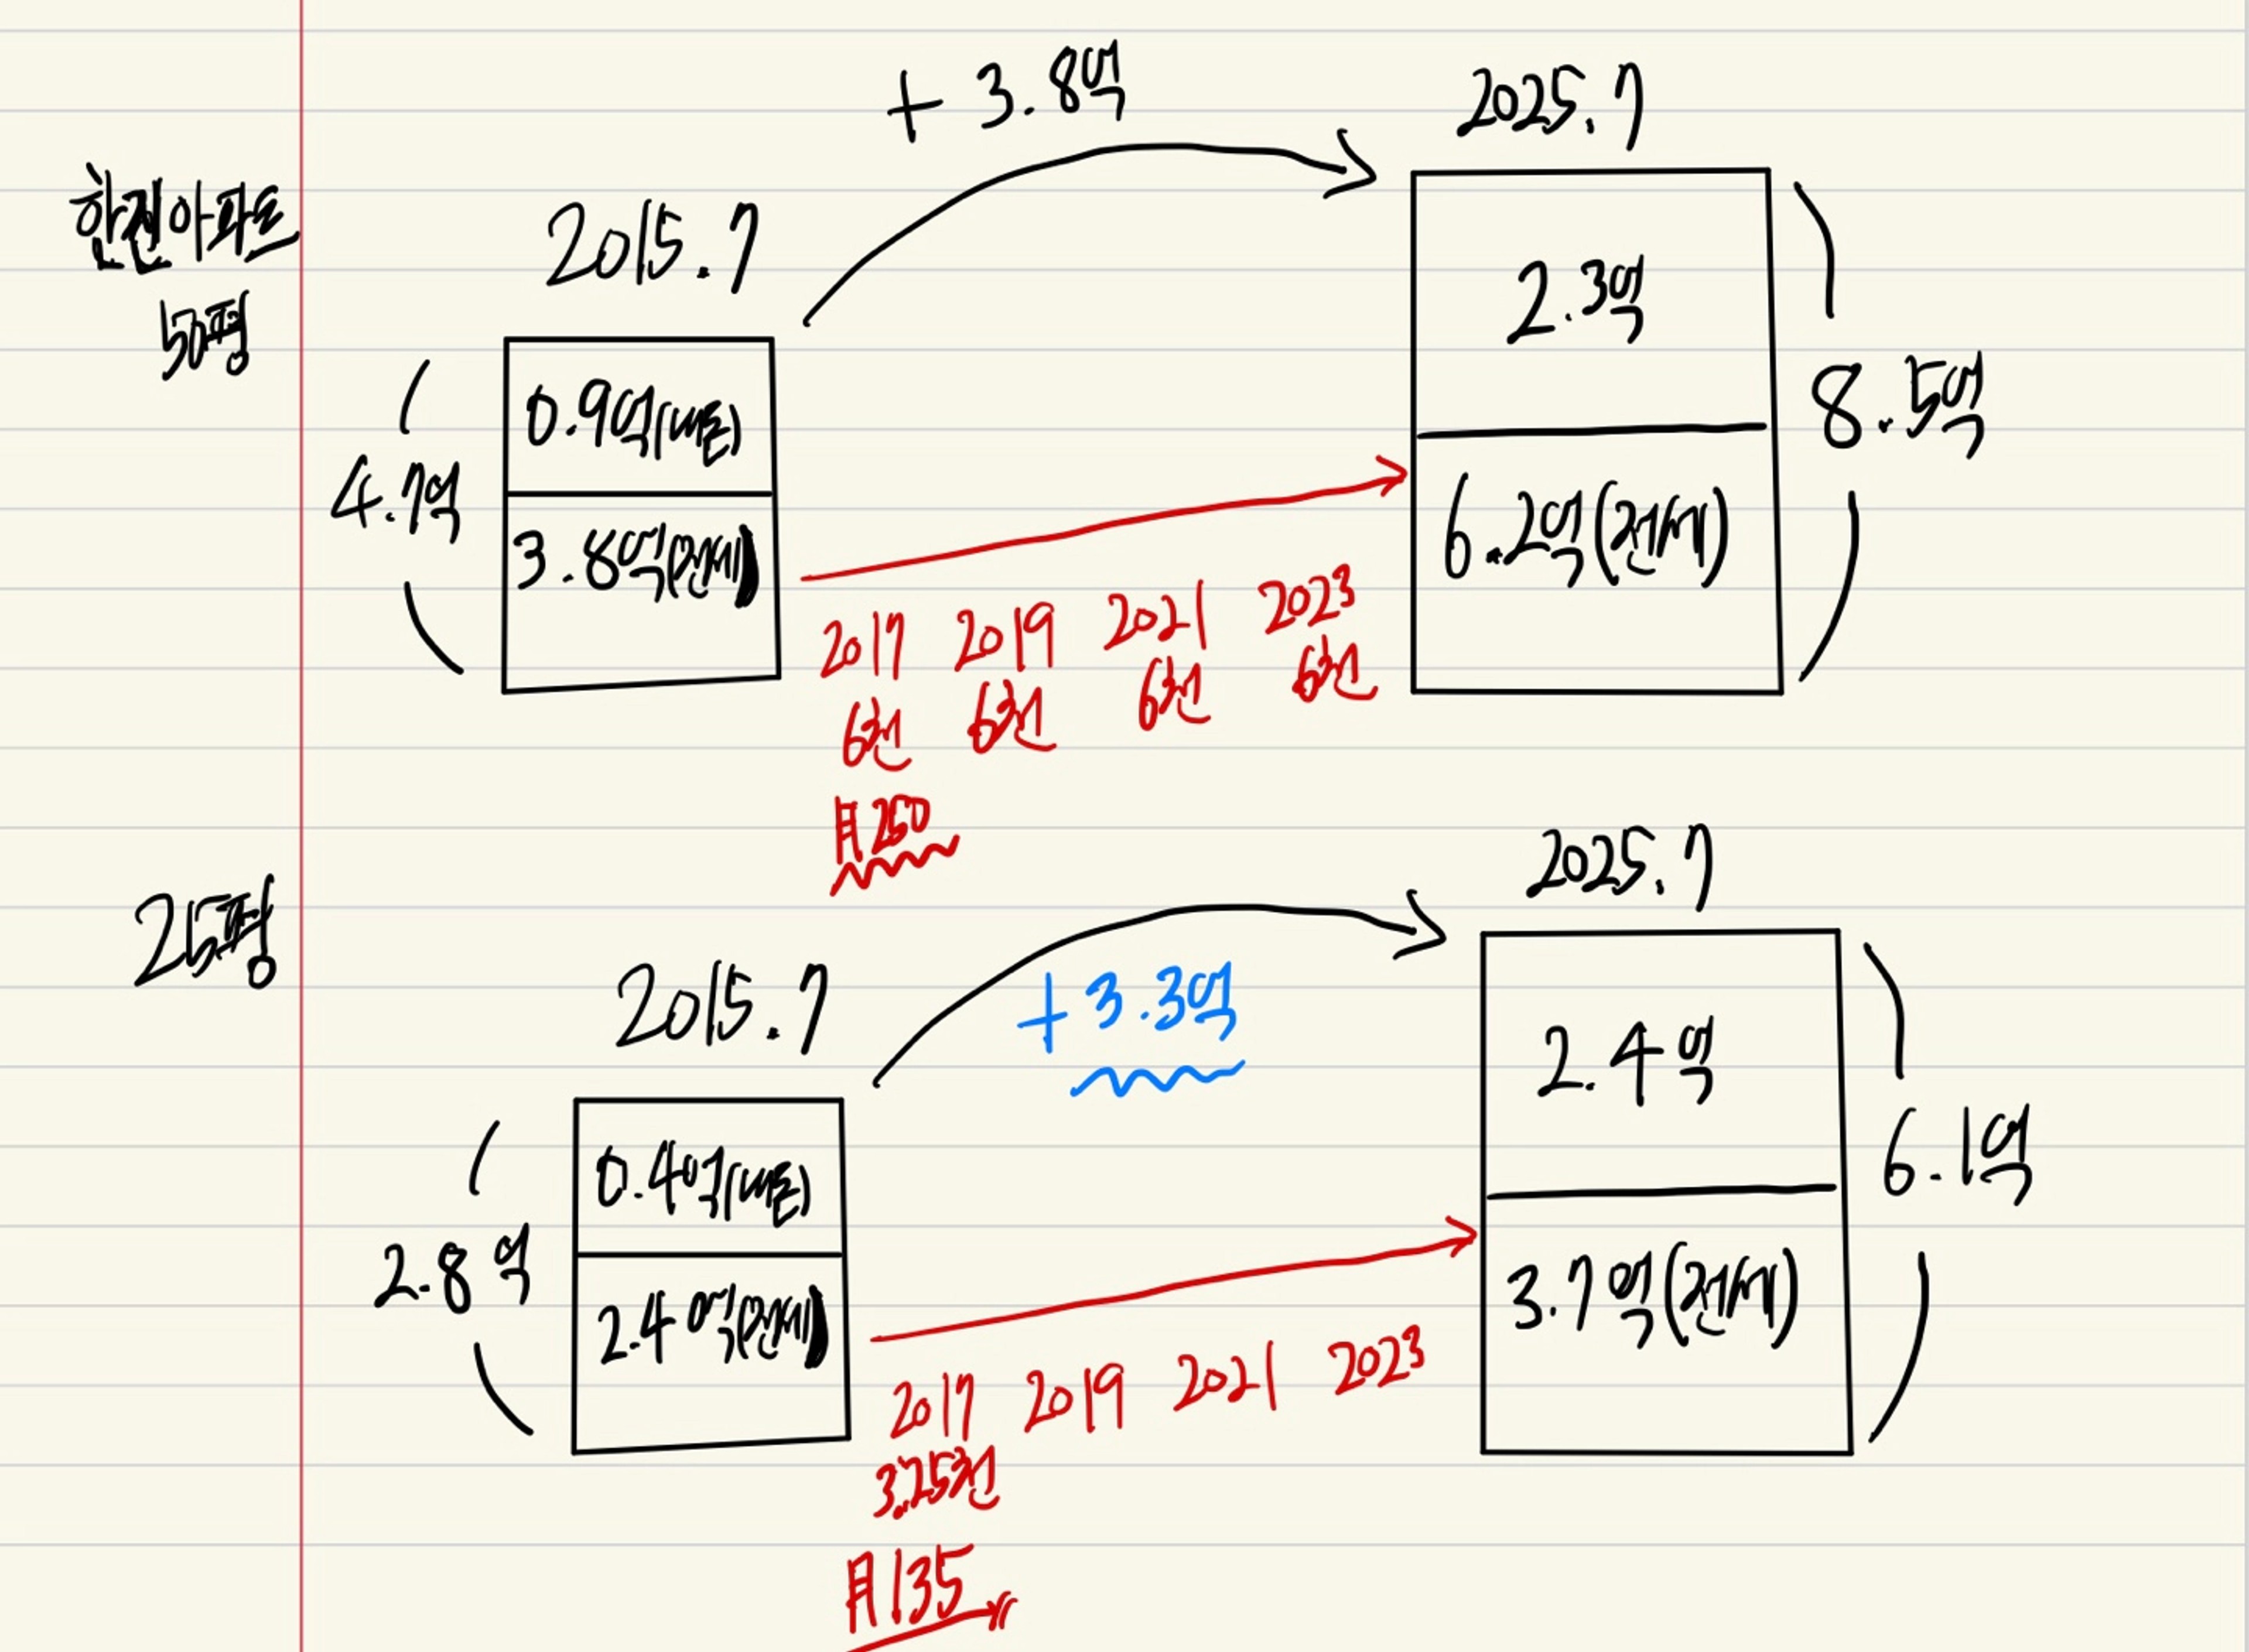 + 3.8억
2025.7
한진아파트
50평
2015.7
0.9억(매매)
4.7억
3.8억(전세)
2.3억
8.5억
6.2억(전세)
2017 2019 2021 2023
6천 6천 6천 6천
月250
25평
2025.7
2015.7
+3.3억
0.4억(매매)
2.8억
2.4억(전세)
2.4억
6.1억
3.7억(전세)
2017 2019 2021 2023
3.25천
月135